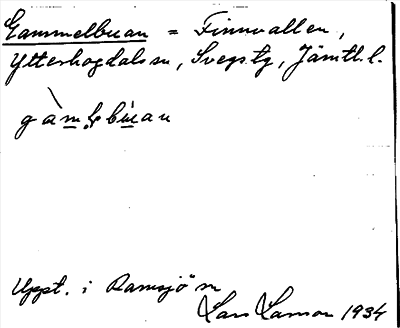 Gammelbuan = Finnvallen,
Ytterhogdals sn, Svegs tg, Jämtl. l.
gàm̲l̥bu̲an
Uppt. i Ramsjö sn
Lars Larson 1934